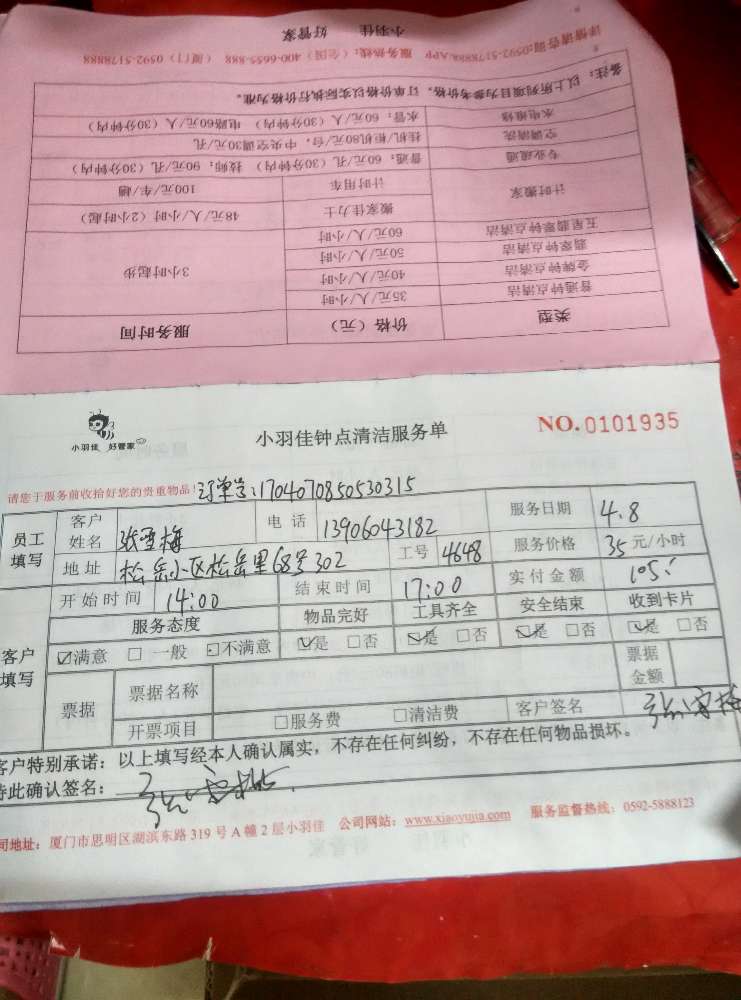 小羽佳 好管家
详情请咨询:0592-5178888/APP 服务热线:(全国)400-6655-888 (厦门)0592-5178888
备注:以上所列项目为参考价格,订单价格以实际执行价格为准。
类型 价格(元) 服务时间
普通钟点清洁 35元/人/小时 3小时起步
金牌钟点清洁 40元/人/小时
翡翠钟点清洁 50元/人/小时
五星翡翠钟点清洁 60元/人/小时
计时搬家 搬家佳力士 48元/人/小时(2小时起)
计时用车 100元/车/趟
专业疏通 普通:60元/孔(30分钟内) 技师:90元/孔(30分钟内)
空调清洗 挂机/柜机80元/台,中央空调30元/孔
水电维修 水管:60元/人(30分钟内) 电路60元/人(30分钟内)
小羽佳 好管家
小羽佳钟点清洁服务单
NO.0101935
请您于服务前收拾好您的贵重物品! 订单号:1704070850530315
员工填写 客户姓名 张雪梅 电话 13906043182 服务日期 4.8
地址 松岳小区松岳里68号302 工号 4648 服务价格 35元/小时
客户填写 开始时间 14:00 结束时间 17:00 实付金额 105
服务态度 物品完好 工具齐全 安全结束 收到卡片
☑满意 □一般 □不满意 ☑是 □否 ☑是 □否 ☑是 □否 ☑是 □否
票据 票据名称 票据金额
开票项目 □服务费 □清洁费 客户签名 张雪梅
客户特别承诺:以上填写经本人确认属实,不存在任何纠纷,不存在任何物品损坏。
特此确认签名: 张雪梅
司地址:厦门市思明区湖滨东路319号A幢2层小羽佳 公司网站:www.xiaoyujia.com 服务监督热线:0592-5888123